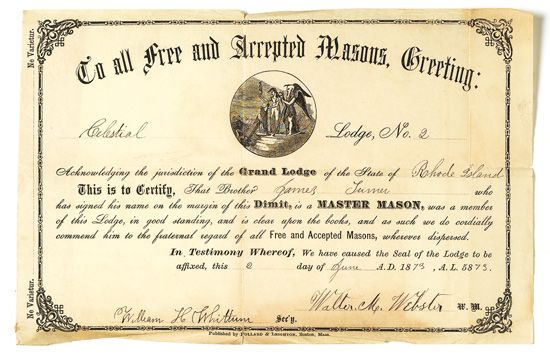 Ne Varietur.
To all Free and Accepted Masons, Greeting:
Celestial Lodge, No. 2
Acknowledging the jurisdiction of the Grand Lodge of the State of Rhode Island
This is to Certify, That Brother James Turner who
has signed his name on the margin of this Dimit, is a MASTER MASON, was a member
of this Lodge, in good standing, and is clear upon the books, and as such we do cordially
commend him to the fraternal regard of all Free and Accepted Masons, wherever dispersed.
In Testimony Whereof, We have caused the Seal of the Lodge to be
affixed, this 2 day of June A.D. 1873, A.L. 5873.
Walter M. Webster W. M.
William H. Whittum Sec'y.
Ne Varietur.
Published by POLLARD & LEIGHTON, Boston, Mass.